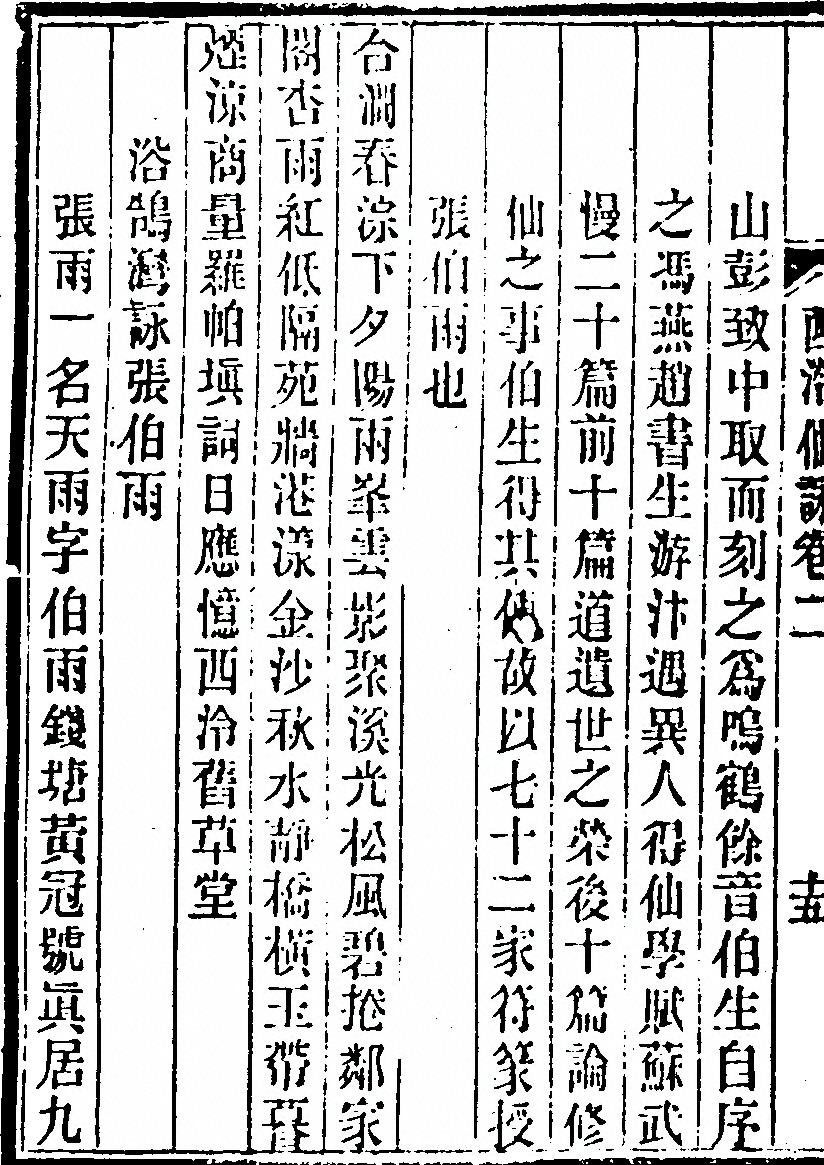 西泠仙詠卷二 十五
山彭致中取而刻之爲鳴鶴餘音伯生自序
之馮燕趙書生游汴遇異人得仙學賦蘇武
慢二十篇前十篇道遺世之榮後十篇論修
仙之事伯生得其傳故以七十二家符篆授
張伯雨也
合澗春淙下夕陽兩峯雲影聚溪光松風碧捲鄰家
閣杏雨紅低隔苑牆港漾金沙秋水靜橋橫玉帶暮
煙涼商量羅帕塡詞日應憶西泠舊草堂
浴鵠灣詠張伯雨
張雨一名天雨字伯雨錢塘黃冠號眞居九